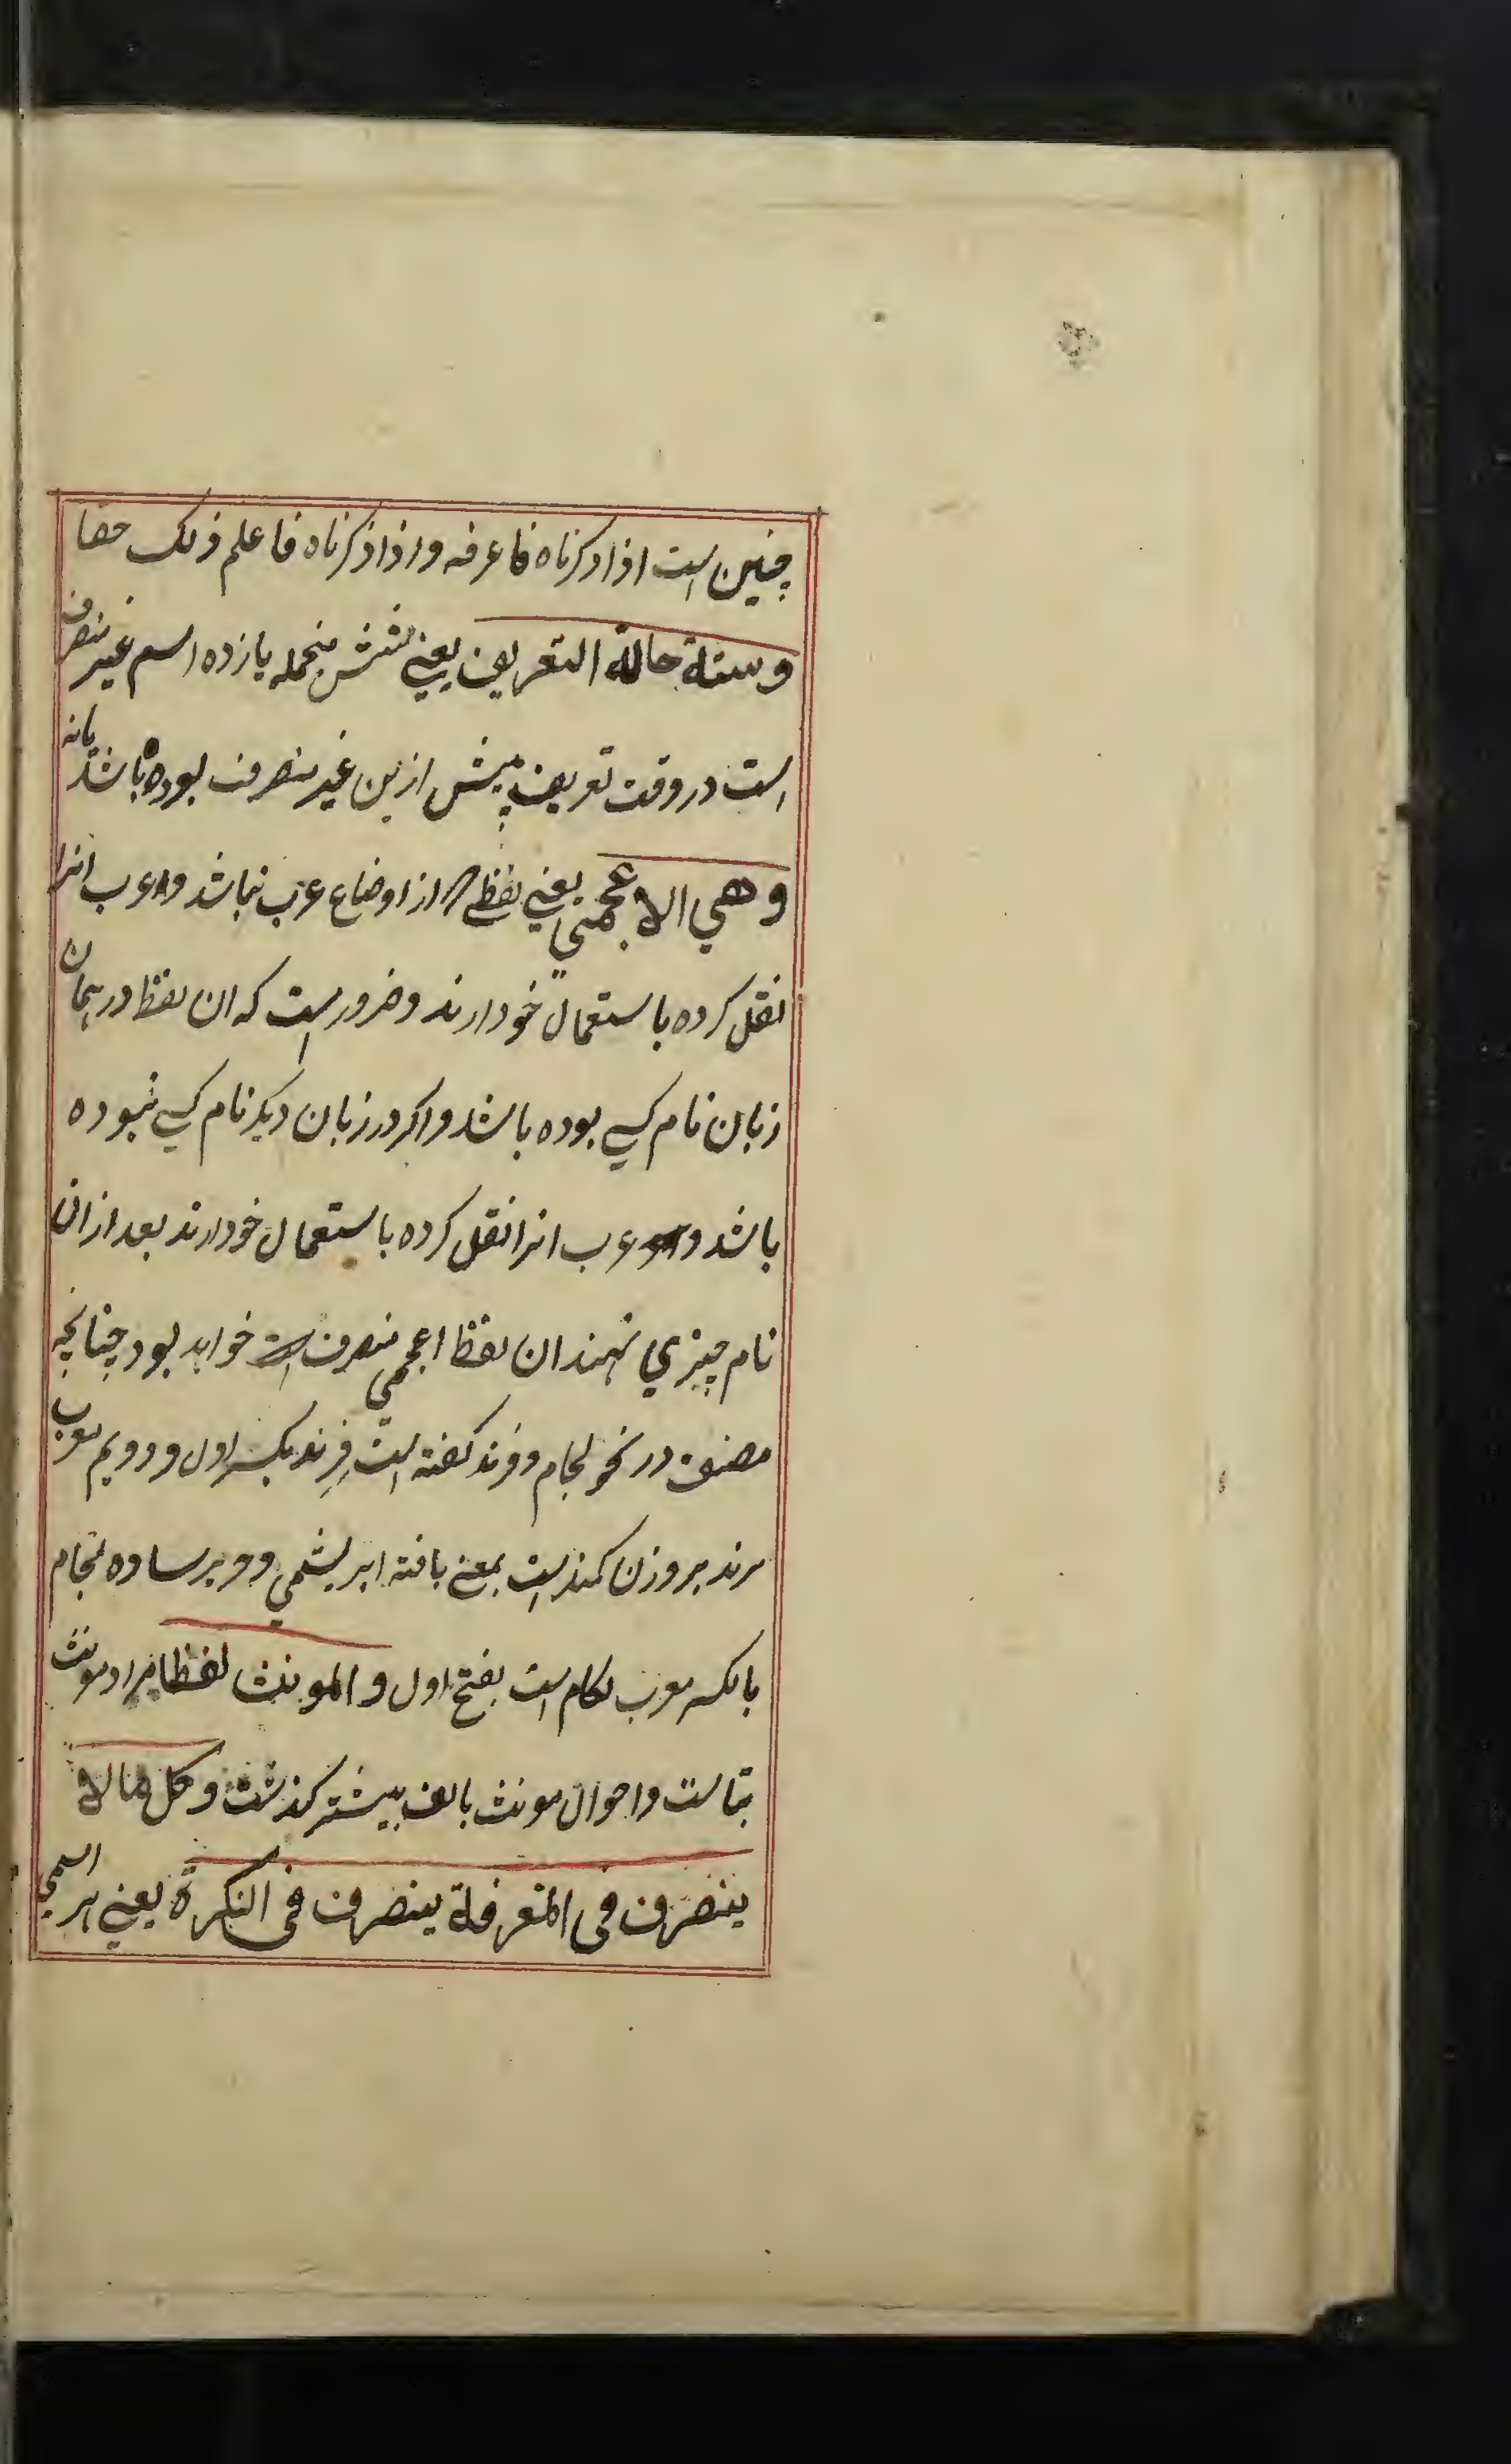 چنین است اذا ذکرناه فاعرفه واذا ذکرناه فاعلم ذلک حقا
وستة حالة التعریف یعنی شش منجمله یازده اسم غیر منصرف
است در وقت تعریف پیش ازین غیر منصرف بوده باشد یا نه
وهي الاعجمي یعنی لفظی از اوضاع عرب نباشد و عرب انرا
نقل کرده باستعمال خود ارند و ضرور است که ان لفظ در همان
زبان نام کسی بوده باشد و اکر در زبان دیکر نام کسی نبوده
باشد و عرب انرا نقل کرده باستعمال خود ارند بعد ازان
نام چیزي نهند ان لفظ اعجمي منصرف خواهد بود چنانچه
مصنف در نحو لجام و فرند کفته است فِرِند بکسر اول و دویم معرب
برند بر وزن کمند است بمعنی بافته ابریشمي و حریر ساده لجام
بالکسر معرب لکام است بفتح اول والمونث لفظا مراد مونث
بتاست و احوال مونث بالف بیشتر کذشت وکل مالا
ینصرف فی المعرفة ینصرف فی النکرة یعنی هر اسمي